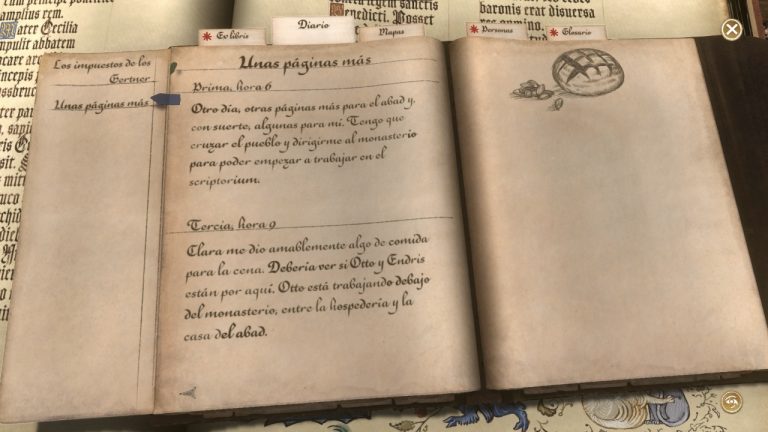 Ex libris
Diario
Mapas
Personas
Glosario
Los impuestos de los
Gertner
Unas páginas más
Unas páginas más
Prima, hora 6
Otro día, otras páginas más para el abad y,
con suerte, algunas para mí. Tengo que
cruzar el pueblo y dirigirme al monasterio
para poder empezar a trabajar en el
scriptorium.
Tercia, hora 9
Clara me dio amablemente algo de comida
para la cena. Debería ver si Otto y Endris
están por aquí. Otto está trabajando debajo
del monasterio, entre la hospedería y la
casa del abad.
ater Cecilia
mpulit abbatem
Benedicti. Posset
baronis erat disuersa